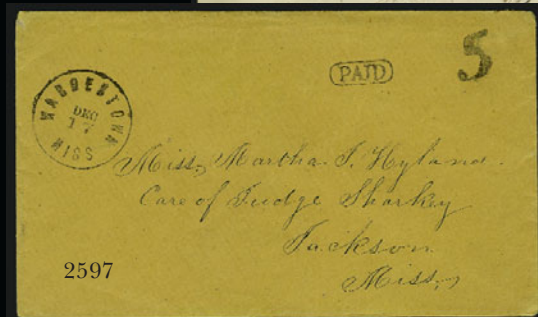 MISS
DEC
17
PAID
5
Miss, Martha. J. Hyland.
Care of Judge Sharkey
Jackson
Miss,
2597